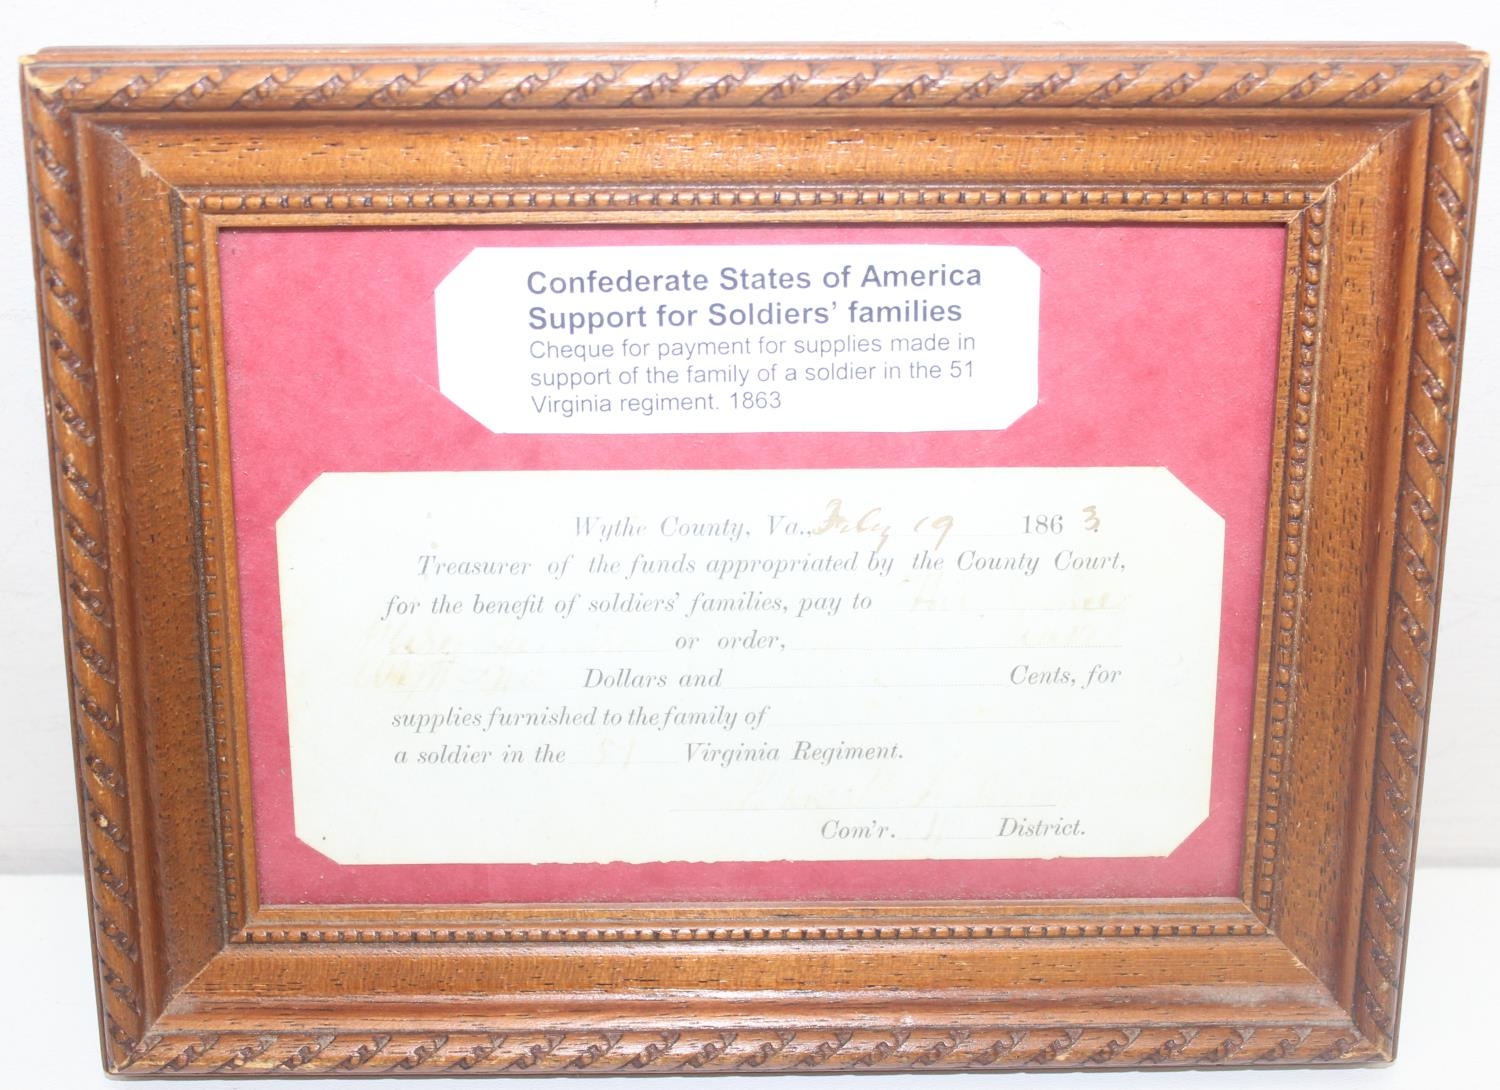 Confederate States of America
Support for Soldiers' families
Cheque for payment for supplies made in
support of the family of a soldier in the 51
Virginia regiment. 1863
Wythe County, Va., July 19 1863.
Treasurer of the funds appropriated by the County Court,
for the benefit of soldiers' families, pay to
or order,
Dollars and Cents, for
supplies furnished to the family of
a soldier in the 51 Virginia Regiment.
Com'r. District.